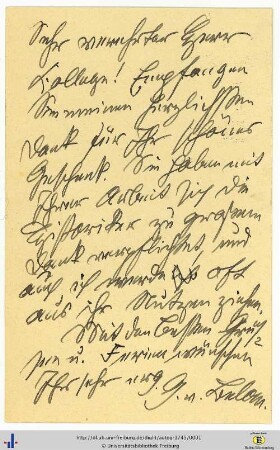 Sehr verehrter Herr
Kollege! Empfangen
Sie meinen herzlichsten
Dank für Ihr schönes
Geschenk. Sie haben mit
Ihrer Arbeit sich die
Historiker zu grossem
Dank verpflichtet, und
auch ich werde oft
aus ihr Nutzen ziehen.
Mit den besten Grüs-
sen u. Ferienwünschen
Ihr sehr erg.
G. v. Below.
© Universitätsbibliothek Freiburg